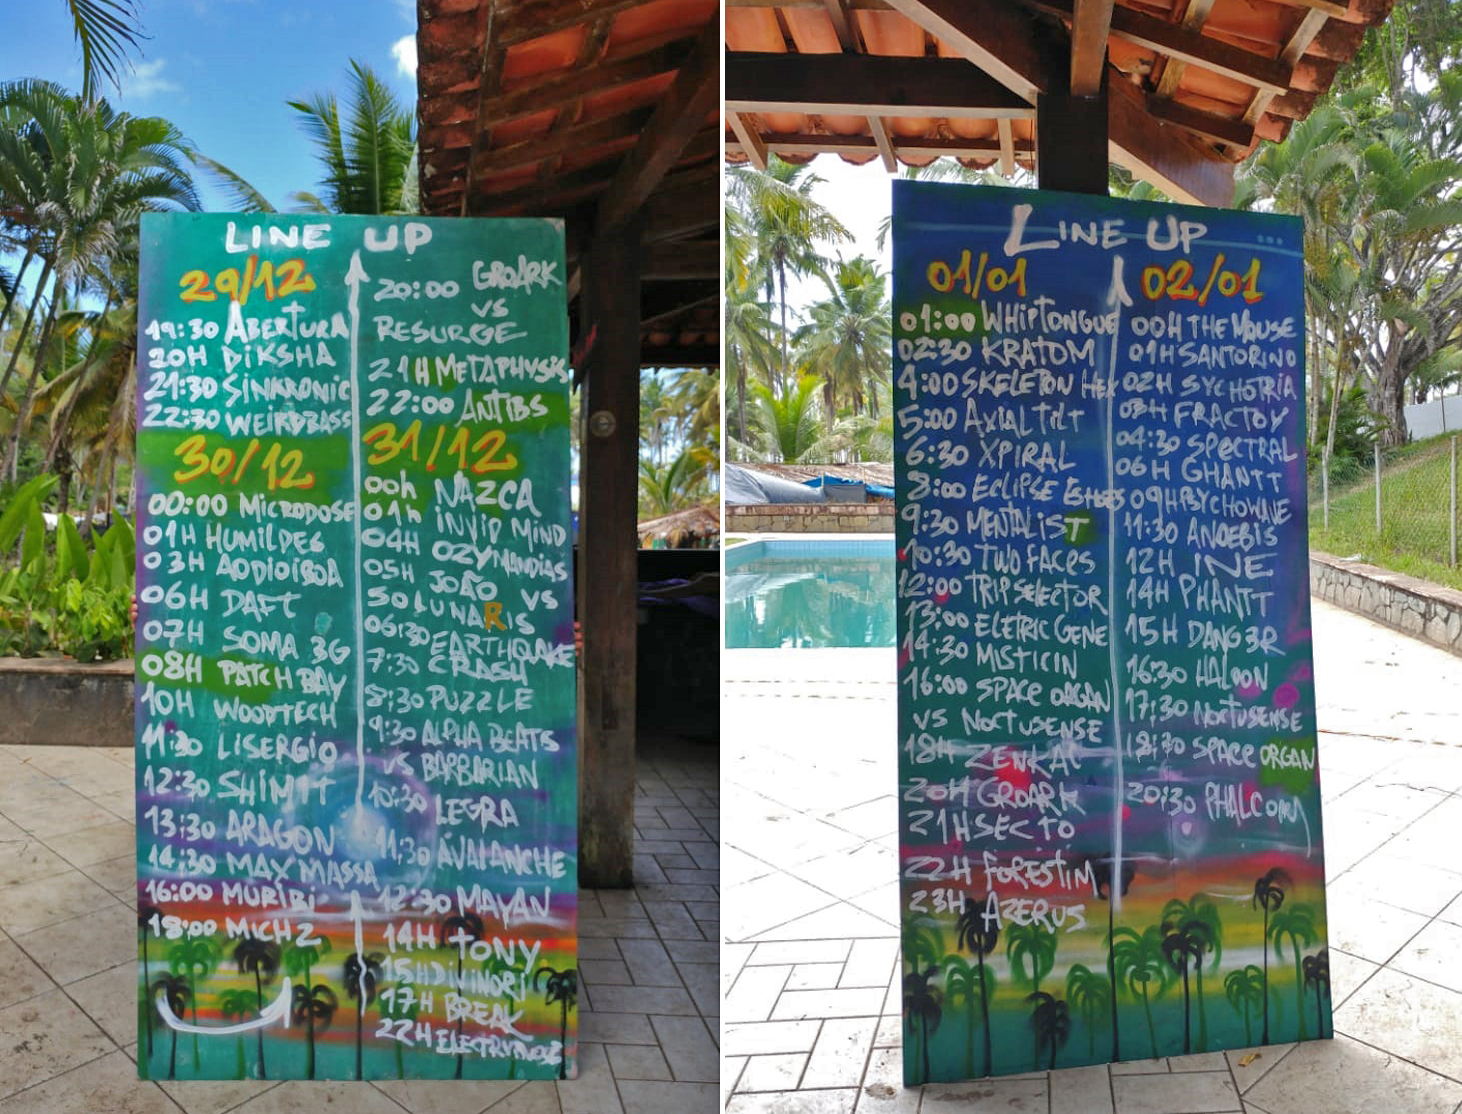 LINE UP
29/12
19:30 ABERTURA
20H DIKSHA
21:30 SINKRONIC
22:30 WEIRDBASS
30/12
00:00 MICRODOSE
01H HUMILDES
03H
06H DAFT
07H SOMA 3G
08H PATCH BAY
10H WOODTECH
11:30 LISERGIO
12:30
13:30 ARAGON
14:30 MAX MASSA
16:00 MURIBI
18:00 MICHZ
20:00 GROARK
VS
RESURGE
21H METAPHYSIS
22:00 ANTIBS
31/12
00h NAZCA
01h INVID MIND
04H OZYMANDIAS
05H JOÃO
50 VS
LUNARIS
06:30 EARTHQUAKE
7:30 CRASH
8:30 PUZZLE
9:30 ALPHA BEATS
VS BARBARIAN
10:30 LEGRA
11:30 AVALANCHE
12:30 MAYAN
14H TONY
15H DIVINORI
17H BREAK
22H
LINE UP
01/01
01:00 WHIPTONGUE
02:30 KRATOM
4:00 SKELETON HEX
5:00 AXIAL TILT
6:30 XPIRAL
8:00 ECLIPSE
9:30 MENTALIST
10:30 TWO FACES
12:00 TRIP SELECTOR
13:00 ELETRIC GENE
14:30 MISTICIN
16:00 SPACE ORGAN
VS NOCTUSENSE
18H ZENKAC
20H GROARK
21H SECTO
22H FORESTIM
23H AZERUS
02/01
00H THE MOUSE
01H SANTORINO
02H SYCHOTRIA
03H FRACTOY
04:30 SPECTRAL
06H GHANTT
09H PSYCHOWAVE
11:30 ANOEBIS
12H INE
14H PHANTT
15H DANG3R
16:30 HALOON
17:30 NOCTUSENSE
18:30 SPACE ORGAN
20:30